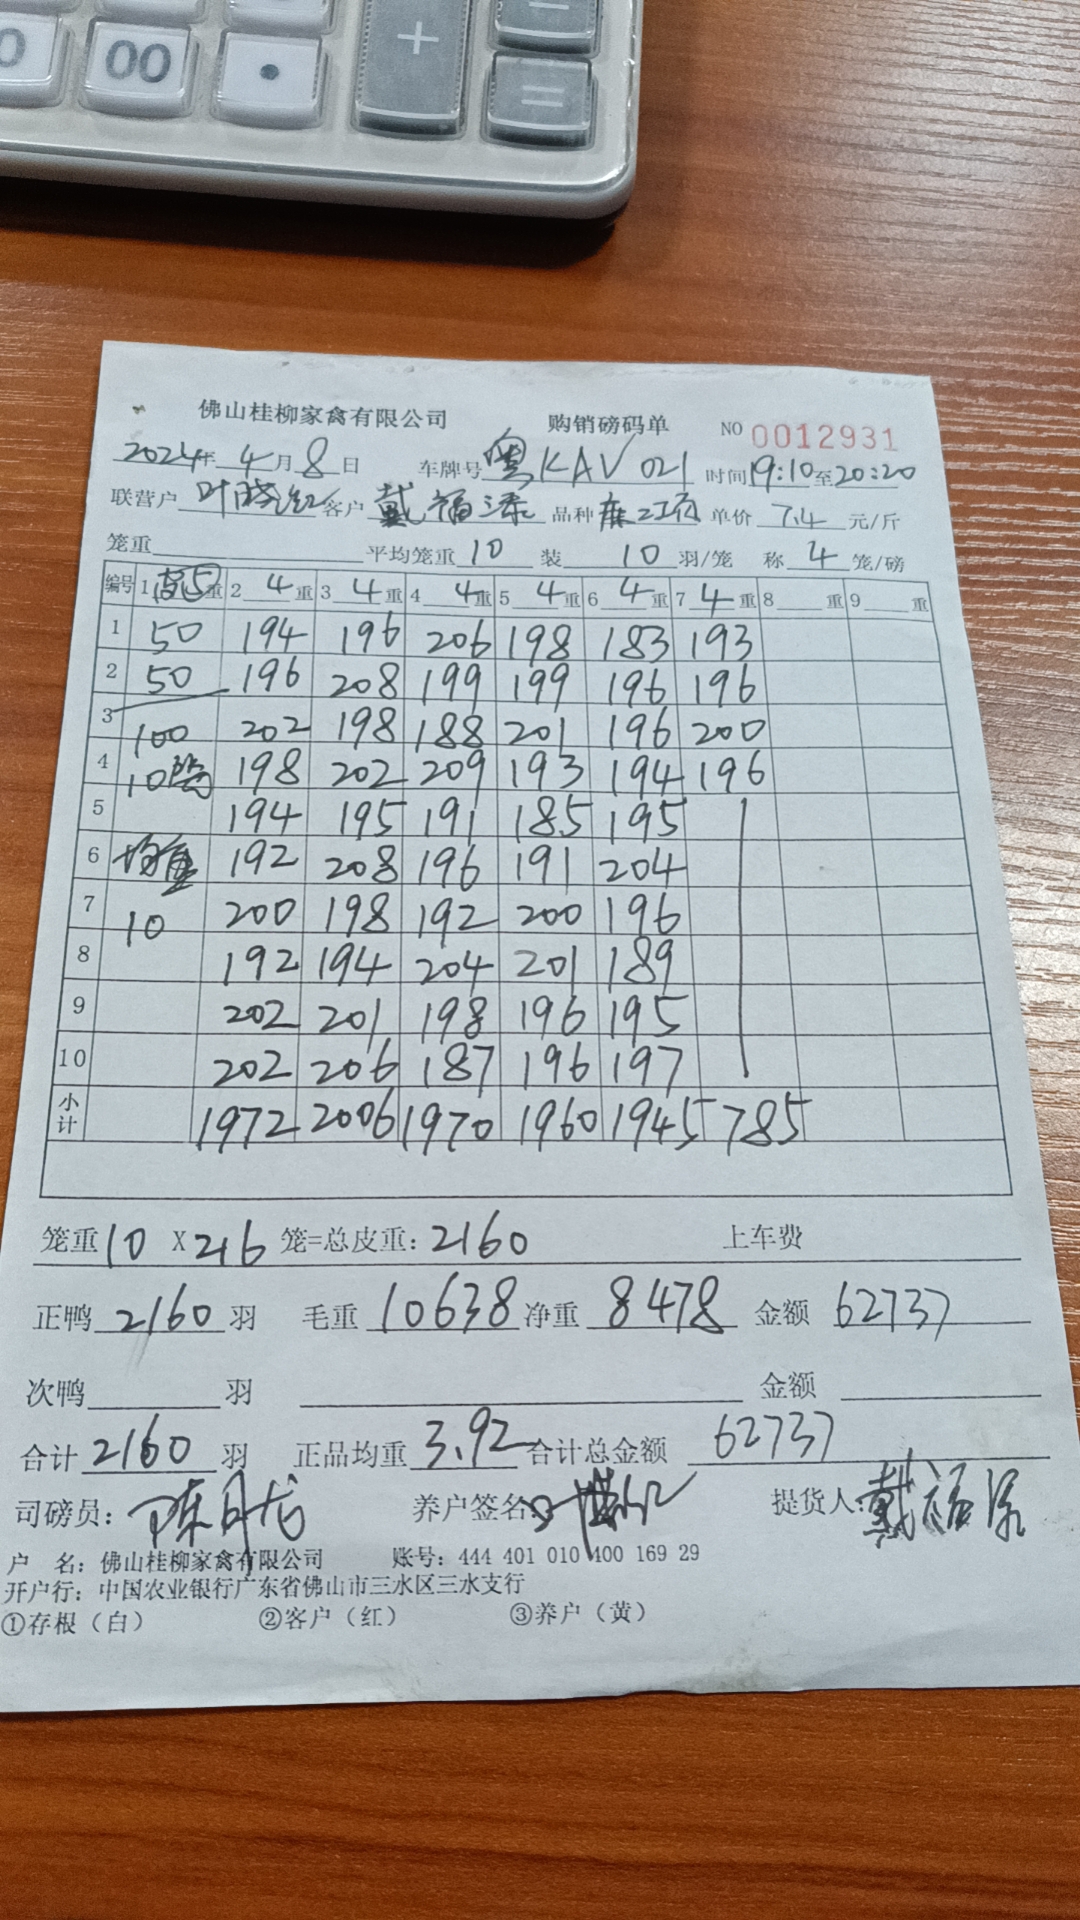 00 · + =
佛山桂柳家禽有限公司 购销磅码单 NO 0012931
2024年 4月 8日 车牌号 粤KAV021 时间 19:10至20:20
联营户 叶晓红 客户 戴福添 品种 单价 7.4 元/斤
笼重 平均笼重 10 装 10 羽/笼 称 4 笼/磅
编号 1 重 2 4 重 3 4 重 4 4 重 5 4 重 6 4 重 7 4 重 8 重 9 重
1 50 194 196 206 198 183 193
2 50 196 208 199 199 196 196
3 100 202 198 188 201 196 200
4 10 198 202 209 193 194 196
5 194 195 191 185 195
6 均重 192 208 196 191 204
7 10 200 198 192 200 196
8 192 194 204 201 189
9 202 201 198 196 195
10 202 206 187 196 197
小计 1972 2006 1970 1960 1945 785
笼重 10 X 216 笼=总皮重: 2160 上车费
正鸭 2160 羽 毛重 10638 净重 8478 金额 62737
次鸭 羽 金额
合计 2160 羽 正品均重 3.92 合计总金额 62737
司磅员: 陈月龙 养户签名: 提货人: 戴福添
户 名: 佛山桂柳家禽有限公司 账号: 444 401 010 400 169 29
开户行: 中国农业银行广东省佛山市三水区三水支行
①存根（白） ②客户（红） ③养户（黄）